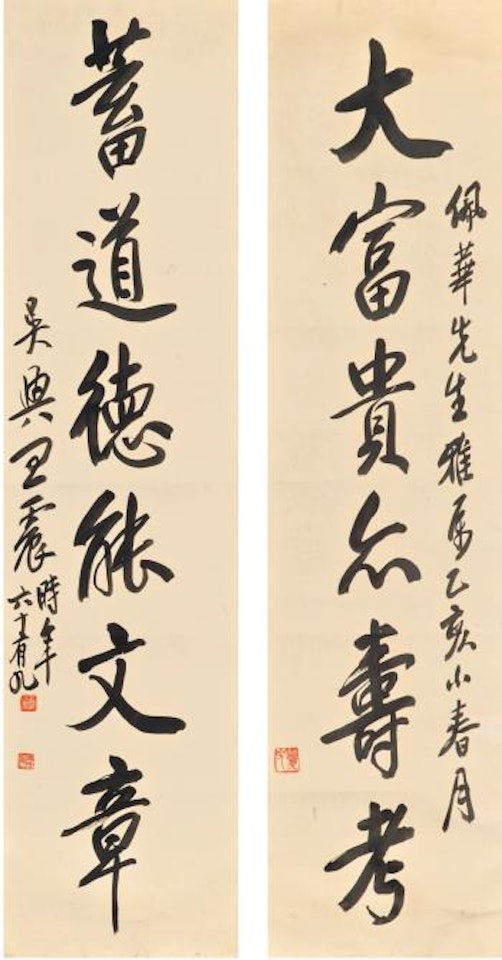 佩華先生雅屬乙亥小春月
大富貴亦壽考
蓄道德能文章
吳興王震時年
六十有九